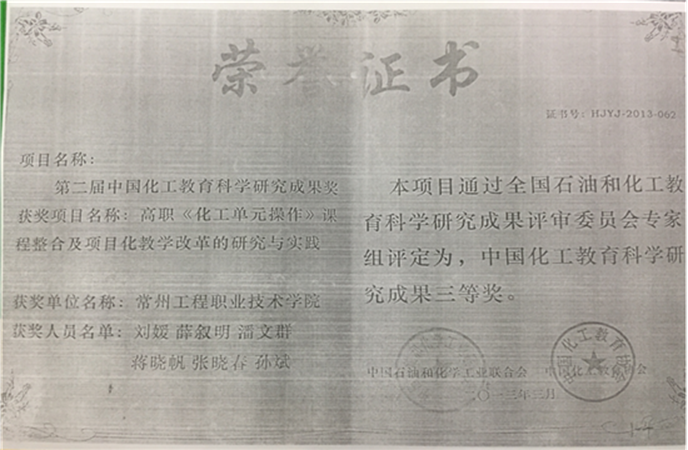 荣誉证书
证书号：HJYJ-2013-062
项目名称：
第二届中国化工教育科学研究成果奖
获奖项目名称：高职《化工单元操作》课
程整合及项目化教学改革的研究与实践
获奖单位名称：常州工程职业技术学院
获奖人员名单：刘媛 薛叙明 潘文群
蒋晓帆 张晓春 孙斌
本项目通过全国石油和化工教
育科学研究成果评审委员会专家
组评定为，中国化工教育科学研
究成果三等奖。
中国石油和化学工业联合会 中国化工教育协会
二〇一三年三月
中国化工教育协会